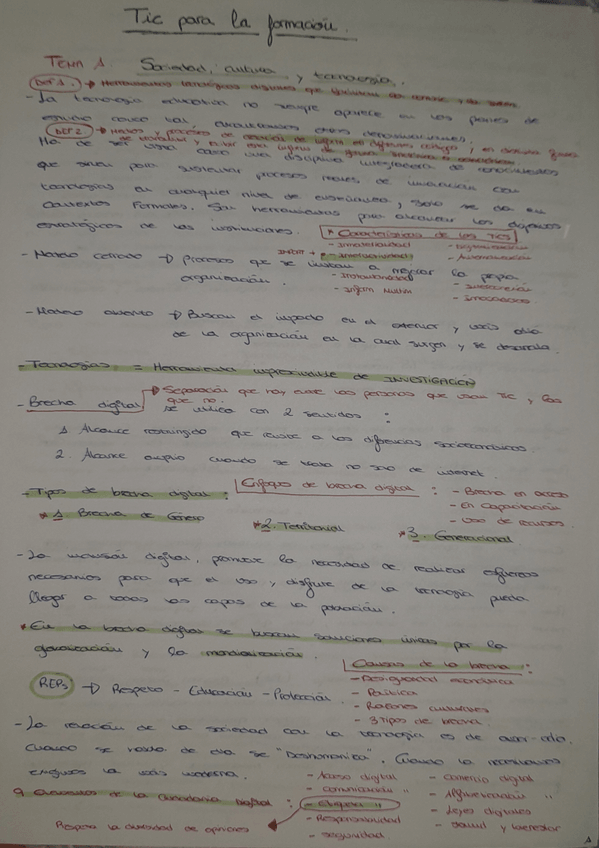 Tic para la formación.
TEMA 1. Sociedad, cultura y tecnología.
DEF 1. → Herramientas tecnológicas digitales que
- La tecnología educativa no siempre aparece en los planes de
estudio como tal, otras denominaciones.
DEF 2. → y procesos de
Ha de ser como una disciplina integradora de conocimientos
que sirven para sustentar procesos reales, de innovación con
tecnologías en cualquier nivel de enseñanza, solo se da en
contextos formales. Son herramientas para alcanzar los objetivos
estratégicos de las instituciones.
* Características de las TICS
- Inmaterialidad
- Interactividad
- Instantaneidad
- Digitalización
- Automatización
- Interconexión
- Innovación
- Modelo cerrado → Procesos que se limitan a mejorar la propia
organización.
- Modelo abierto → Buscan el impacto en el exterior y más allá
de la organización en la cual surgen y se desarrolla.
- Tecnologías = Herramienta imprescindible de INVESTIGACIÓN
- Brecha digital → Separación que hay entre las personas que usan TIC y las
que no.
se utiliza con 2 sentidos :
1. Alcance restringido que reviste a las diferencias socioeconómicas.
2. Alcance amplio cuando se trata no solo de internet.
- Tipos de brecha digital :
Enfoques de brecha digital : - Brecha en acceso
- En capacitación
- Uso de recursos.
* 1 Brecha de Género
* 2. Territorial
* 3. Generacional
- La inclusión digital, promueve la necesidad de realizar esfuerzos
necesarios para que el uso y disfrute de la tecnología pueda
llegar a todas las capas de la población.
* En la brecha digital se buscan soluciones únicas por la
globalización y la mundialización.
Causas de la brecha :
- Desigualdad económica
- Política
- Razones culturales
- 3 tipos de brecha.
REPs → Respeto - Educación - Protección.
- La relación de la sociedad con la tecnología es de amor-odio.
Cuando se habla de ella se "Deshumaniza". Cuando la necesitamos
exigimos la más moderna.
9 elementos de la Ciudadanía Digital :
- Acceso digital
- comunicación "
- etiqueta "
- Responsabilidad
- seguridad
- comercio digital
- Alfabetización "
- Leyes digitales
- salud y bienestar
Respeta la cantidad de opiniones